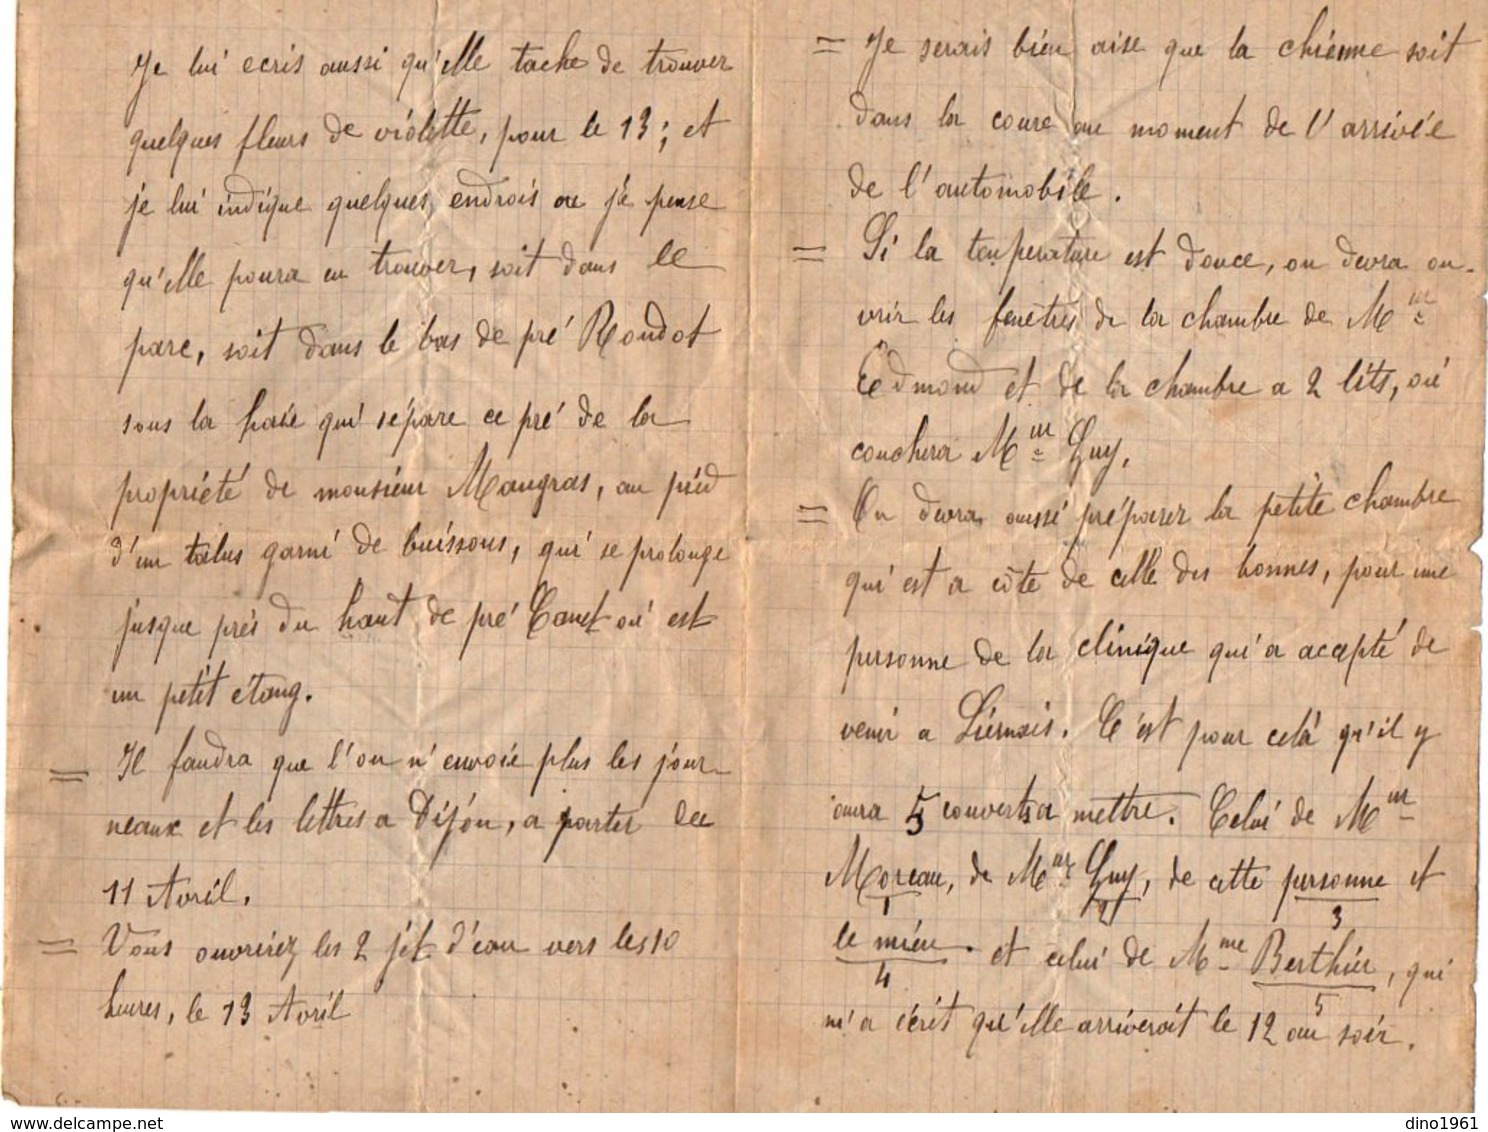 Je lui ecris aussi qu'elle tache de trouver
quelques fleurs de violette, pour le 13; et
je lui indique quelques endrois ou je pense
qu'elle poura en trouver, soit dans le
parc, soit dans le bas de pré Rondot
sous la haie qui sépare ce pré de la
propriété de monsieur Maugras, au pied
d'un talus garni de buissons, qui se prolonge
jusque près du haut de pré Canet où est
un petit étang.
= Il faudra que l'on n'envoie plus les jour-
neaux et les lettres a Dijon, a parter du
11 Avril.
= Vous ouvrirez les 2 jet d'eau vers les 10
heures, le 13 Avril
= Je serais bien aise que la chienne soit
dans la coure au moment de l'arrivée
de l'automobile.
= Si la temperature est douce, on devra ou-
vrir les fenêtres de la chambre de Mme
Edmond et de la chambre a 2 lits, où
couchera Mme Guy.
= On devra aussi préparer la petite chambre
qui est a côte de celle des bonnes, pour une
personne de la clinique qui a accepté de
venir a Liernais. C'est pour celà qu'il y
aura 5 couverts a mettre. Celui de Mme
Moreau, de Mme Guy, de cette personne et
1 2 3
le mien. et celui de Mme Berthier, qui
4 5
m'a écrit qu'elle arriverait le 12 au soir.
dino1961
www.delcampe.net